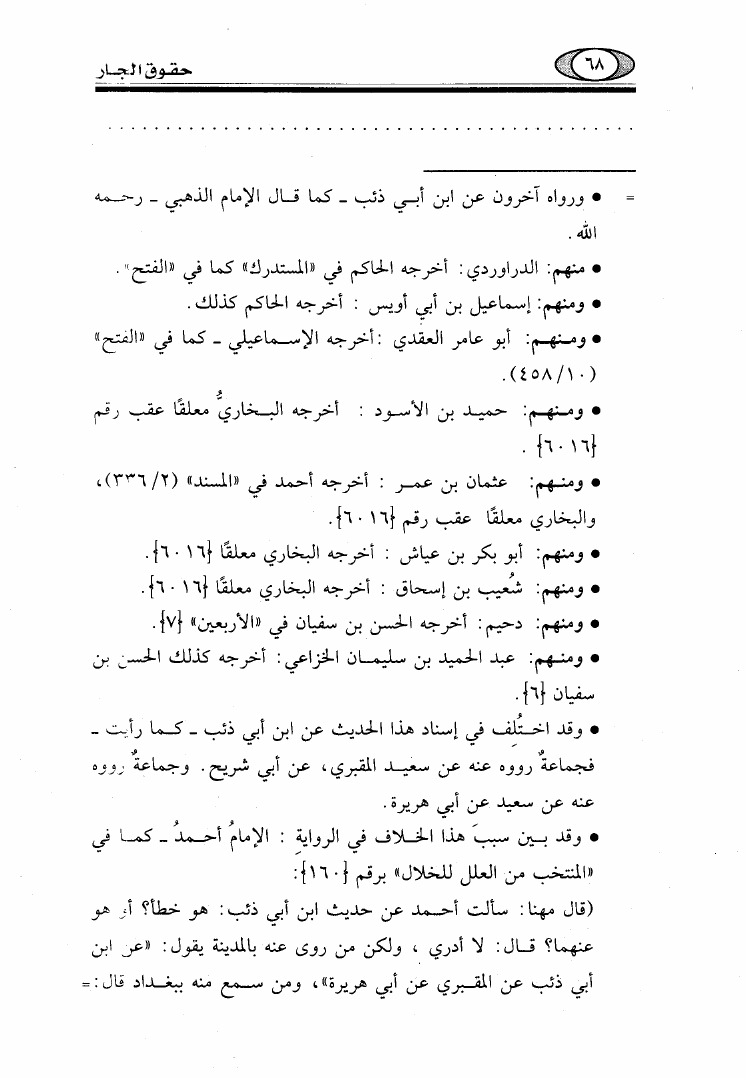 ٦٨
حقوق الجار
. . . . . . . . . . . . . . . . . . . . . . . . . . . . . . . . . . . . . . . . . . . . .
= • ورواه آخرون عن ابن أبي ذئب ـ كما قال الإمام الذهبي ـ رحمه
الله .
• منهم: الدراوردي: أخرجه الحاكم في «المستدرك» كما في «الفتح».
• ومنهم: إسماعيل بن أبي أويس : أخرجه الحاكم كذلك.
• ومنهم: أبو عامر العقدي :أخرجه الإسماعيلي ـ كما في «الفتح»
(٤٥٨/١٠).
• ومنهم: حميد بن الأسود : أخرجه البخاريُّ معلقًا عقب رقم
{٦٠١٦} .
• ومنهم: عثمان بن عمر : أخرجه أحمد في «المسند» (٣٣٦/٢)،
والبخاري معلقًا عقب رقم {٦٠١٦}.
• ومنهم: أبو بكر بن عياش : أخرجه البخاري معلقًا {٦٠١٦}.
• ومنهم: شُعيب بن إسحاق : أخرجه البخاري معلقًا {٦٠١٦}.
• ومنهم: دحيم: أخرجه الحسن بن سفيان في «الأربعين» {٧}.
• ومنهم: عبد الحميد بن سليمان الخزاعي: أخرجه كذلك الحسن بن
سفيان {٦}.
• وقد اختُلِف في إسناد هذا الحديث عن ابن أبي ذئب ـ كما رأيت ـ
فجماعةٌ رووه عنه عن سعيد المقبري، عن أبي شريح. وجماعةٌ رووه
عنه عن سعيد عن أبي هريرة.
• وقد بين سببَ هذا الخلاف في الروايةِ : الإمامُ أحمدُ ـ كما في
«المنتخب من العلل للخلال» برقم {١٦٠}:
(قال مهنا: سألت أحمد عن حديث ابن أبي ذئب: هو خطأ؟ أو هو
عنهما؟ قال: لا أدري ، ولكن من روى عنه بالمدينة يقول: «عن ابن
أبي ذئب عن المقبري عن أبي هريرة»، ومن سمع منه ببغداد قال: =